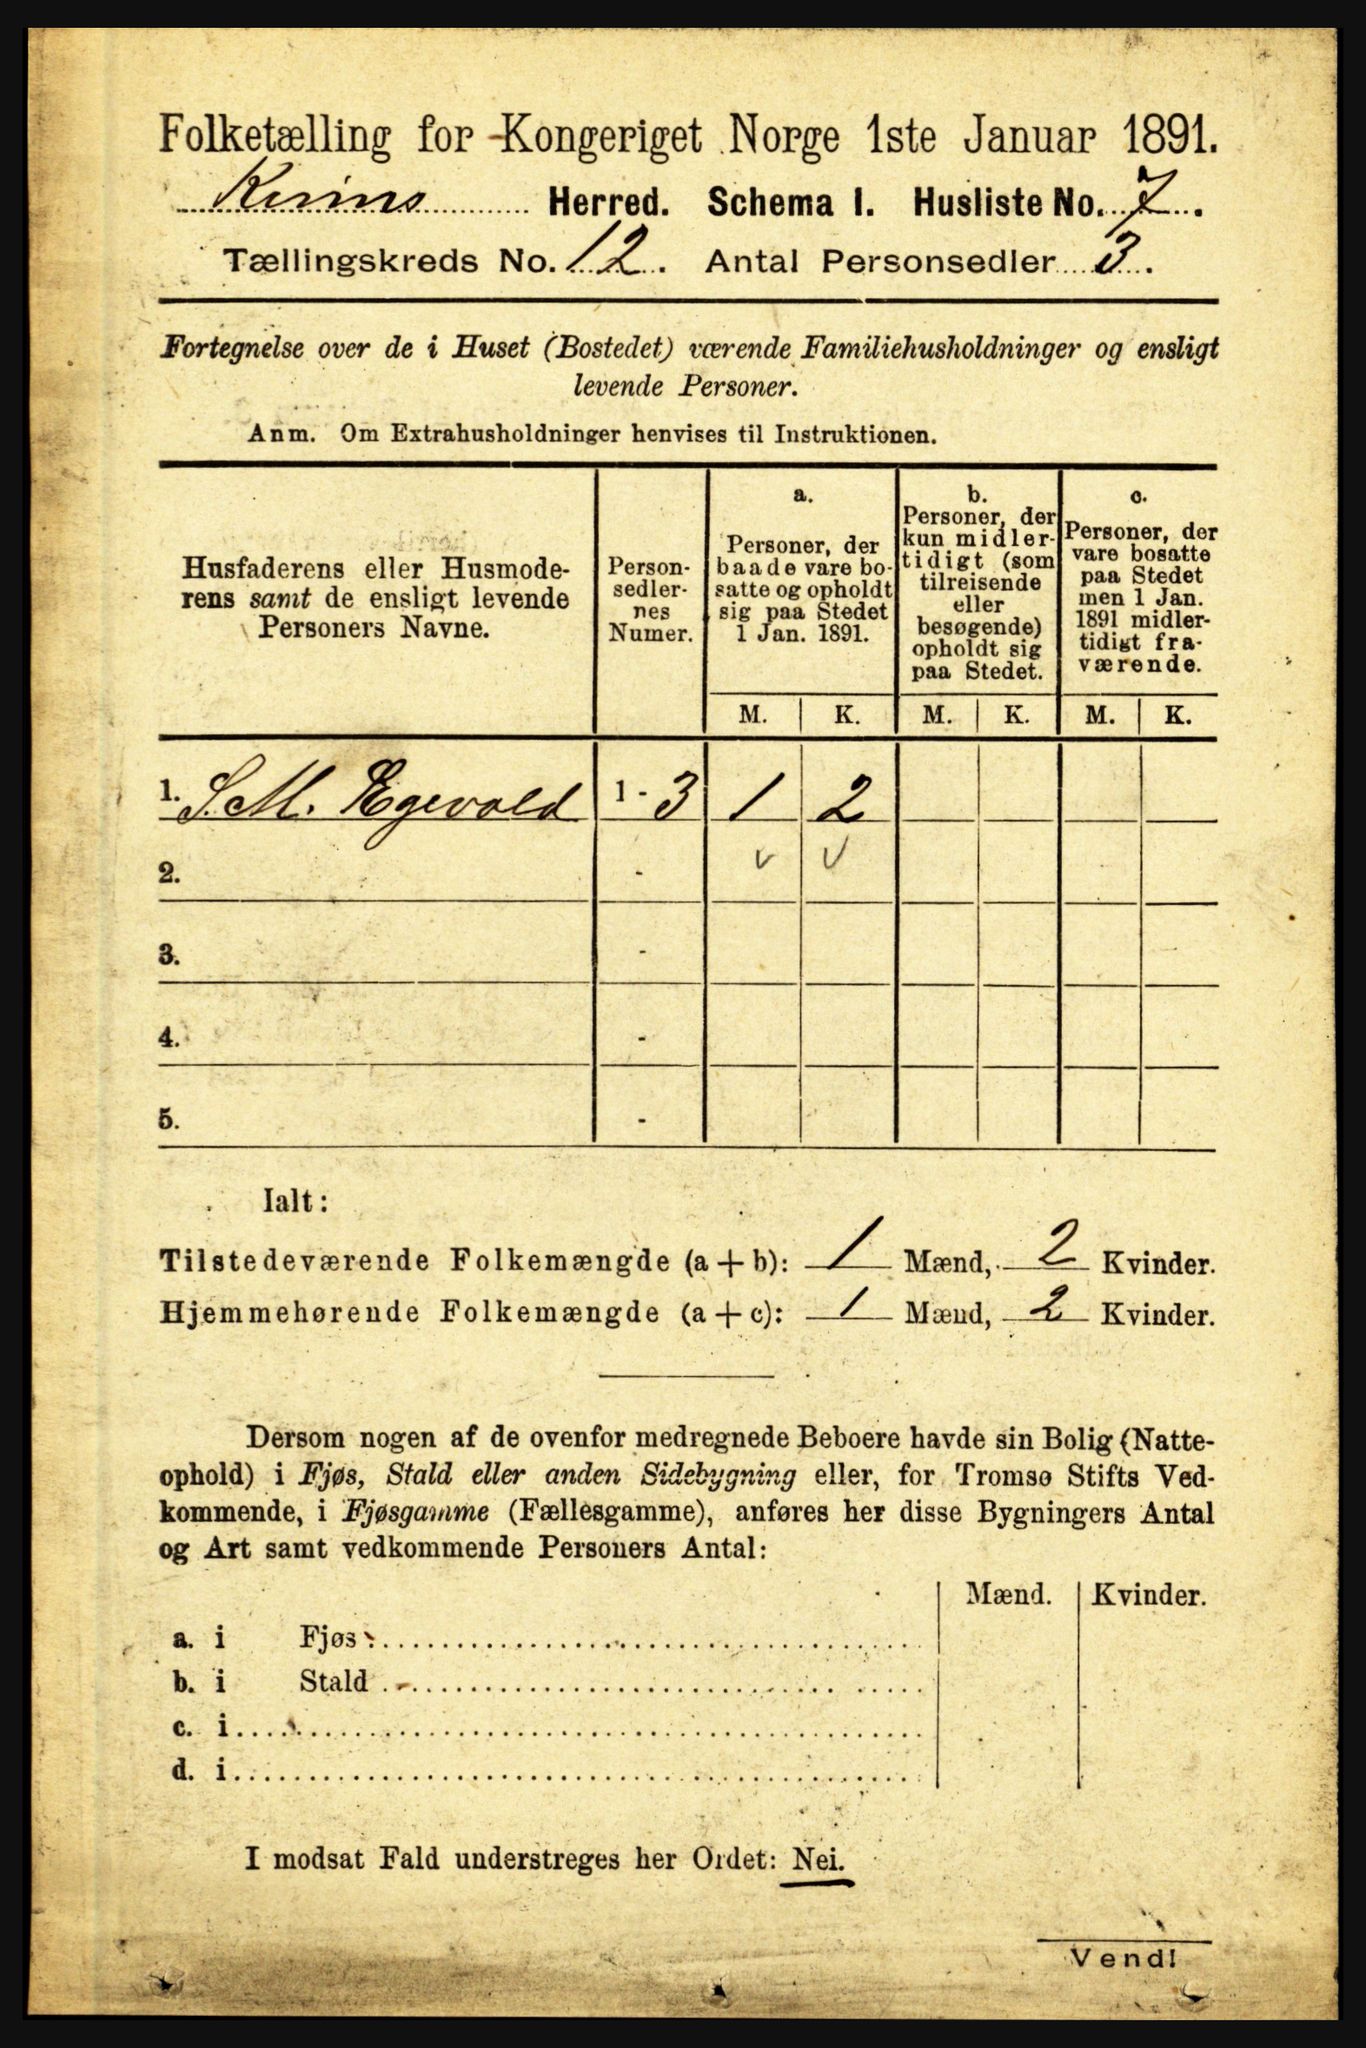 Folketælling for Kongeriget Norge 1ste Januar 1891.
Kinns Herred. Schema I. Husliste No. 7.
Tællingskreds No. 12. Antal Personsedler 3.
Fortegnelse over de i Huset (Bostedet) værende Familiehusholdninger og ensligt
levende Personer.
Anm. Om Extrahusholdninger henvises til Instruktionen.
Husfaderens eller Husmode-
rens samt de ensligt levende
Personers Navne.
Person-
sedler-
nes
Numer.
a.
Personer, der
baade vare bo-
satte og opholdt
sig paa Stedet
1 Jan. 1891.
b.
Personer, der
kun midler-
tidigt (som
tilreisende
eller
besøgende)
opholdt sig
paa Stedet.
c.
Personer, der
vare bosatte
paa Stedet
men 1 Jan.
1891 midler-
tidigt fra-
værende.
M. K. M. K. M. K.
1. S. M. Egevold 1 - 3 1 2
2. - v v
3. -
4. -
5. -
Ialt:
Tilstedeværende Folkemængde (a + b): 1 Mænd, 2 Kvinder.
Hjemmehørende Folkemængde (a + c): 1 Mænd, 2 Kvinder.
Dersom nogen af de ovenfor medregnede Beboere havde sin Bolig (Natte-
ophold) i Fjøs, Stald eller anden Sidebygning eller, for Tromsø Stifts Ved-
kommende, i Fjøsgamme (Fællesgamme), anføres her disse Bygningers Antal
og Art samt vedkommende Personers Antal:
Mænd. Kvinder.
a. i Fjøs
b. i Stald
c. i
d. i
I modsat Fald understreges her Ordet: Nei.
Vend!